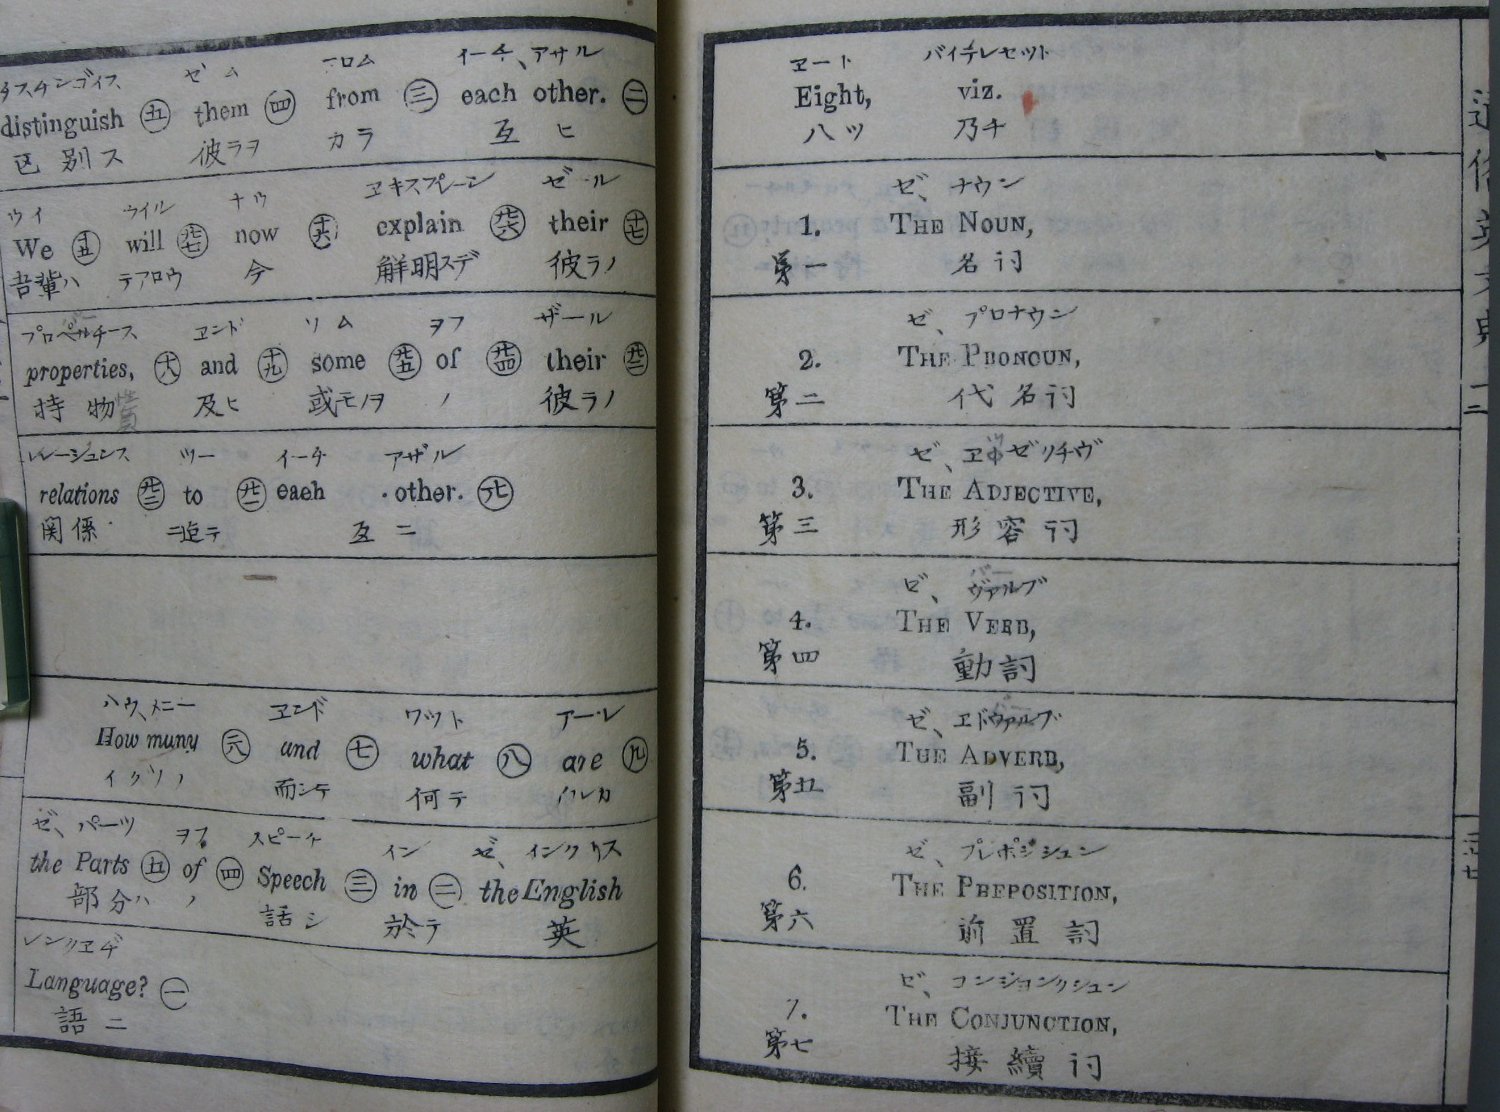 タスチンゴイス ゼム フロム イーチ、アサル
distinguish 五 them 四 from 三 each other. 二
区別ス 彼ラヲ カラ 互ヒ
ウイ ウイル ナウ ヱキスプレーン ゼール
We 五 will now explain 其 their 十七
吾輩ハ テアロウ 今 解明スデ 彼ラノ
プロペルチース ヱンド ソム ヲフ ザール
properties, 十八 and 十九 some 廿五 of 廿四 their 廿三
持物 及ヒ 或モノヲ ノ 彼ラノ
レレージュンス ツー イーチ アザル
relations to 廿一 each other.
関係 ニ迄テ 互ニ
ハウ、メニー ヱンド ワツト アール
How muny 六 and 七 what 八 are 九
イクツノ 而シテ 何テ
ゼ、パーツ ヲフ スピーチ イン ゼ、インクリス
the Parts 五 of 四 Speech 三 in 二 the English
部分ハ ノ 話シ 於テ 英
レンクヱヂ
Language? 一
語ニ
ヱート バイデレセツト
Eight, viz.
八ツ 乃チ
ゼ、ナウン
1. THE NOUN,
第一 名詞
ゼ、プロナウン
2. THE PRONOUN,
第二 代名詞
ゼ、
3. THE ADJECTIVE,
第三 形容詞
ゼ、ヴァルブ
4. THE VERB,
第四 動詞
ゼ、ヱドヴァルブ
5. THE ADVERB,
第五 副詞
ゼ、プレポジシュン
6. THE PREPOSITION,
第六 前置詞
ゼ、コンジョンクシュン
7. THE CONJUNCTION,
第七 接續詞
通俗英文典 二